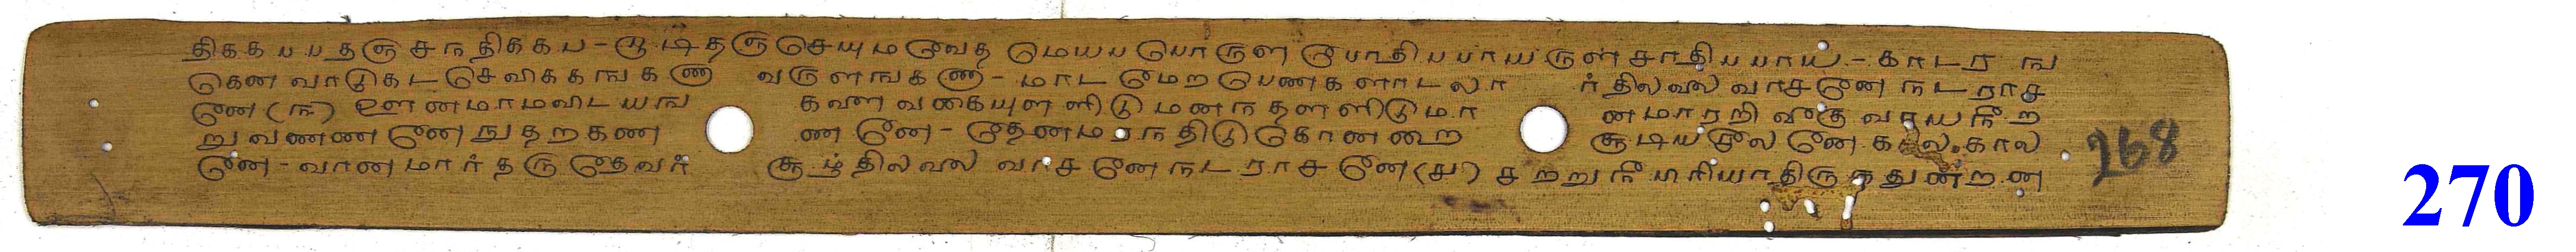 திககபபதஞசநதிககப-ரூடிதஞசெயுமவேத மெயபபொருள போதிபபாயருளசாதிபபாய-காடரங
கெணவாடுகடசெவிககஙகணீ வருளஙகணீ-மாடமேறபெணகளாடலா ர்தில்லை வாசனே நடராச
னே(ந) ஊனமாமவிடயங களைவகையுளளிடுமனநதளளிடுமா னமாரறி வீகுவாயநீற
றுவணணனேநுதறகண ணனே-தேனமரநதிடுகொனறை சூடியசீலனே காலகால
னே-வானமாரதருதேவர் சூழ்தில்லை வாசனே நடராசனே(ச) சறறுநீ பிரியாதிருநதுணறன
268
270